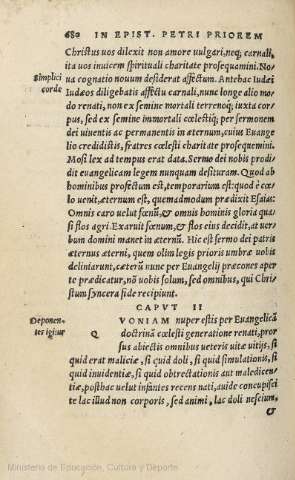 680 IN EPIST. PETRI PRIOREM
Christus uos dilexit nou amore uulgari, neq; carnali,
ita uos inuicem spirituali charitate prosequamini. No-
ua cognatio nouum desiderat affectum. Antehac Iudæi
Simplici
corde
Iudæos diligebatis affectu carnali, nunc longe alio mo-
do renati, non ex semine mortali terrenoq; iuxta cor-
pus, sed ex semine immortali cœlestiq;, per sermonem
dei uiuentis ac permanentis in æternum, cuius Euange
lio credidistis, fratres cœlesti charitate prosequemini.
Mosi lex ad tempus erat data. Sermo dei nobis prodi-
dit euangelicam legem nunquam desituram. Quod ab
hominibus profectum est, temporarium est: quod è cœ-
lo uenit, æternum est, quemadmodum prædixit Esaias:
Omnis caro uelut fœnũ, & omnis hominis gloria qua-
si flos agri. Exaruit fœnum, & flos eius decidit, at uer-
bum domini manet in æternũ. Hic est sermo dei patris
æternus æterni, quem olim legis prioris umbræ uobis
deliniarunt, cæterũ nunc per Euangelij præcones aper
te prædicatur, nõ uobis solum, sed omnibus, qui Chri-
stum syncera fide recipiunt.
CAPVT II
Deponen-
tes igitur
Q VONIAM nuper estis per Euangelicã
doctrinã cœlesti generatione renati, pror
sus abiectis omnibus ueteris uitæ uitijs, si
quid erat maliciæ, si quid doli, si quid simulationis, si
quid inuidentiæ, si quid obtrectationis aut maledicen-
tiæ, posthac uelut infantes recens nati, auide concupisci
te lac illud non corporis, sed animi, lac doli nescium,
&
Ministerio de Educación, Cultura y Deporte